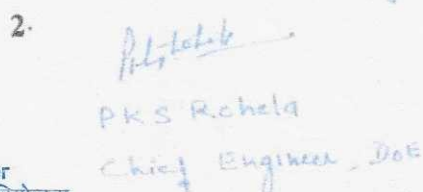 2.
PKS Rohela
Chief Engineer, DoE